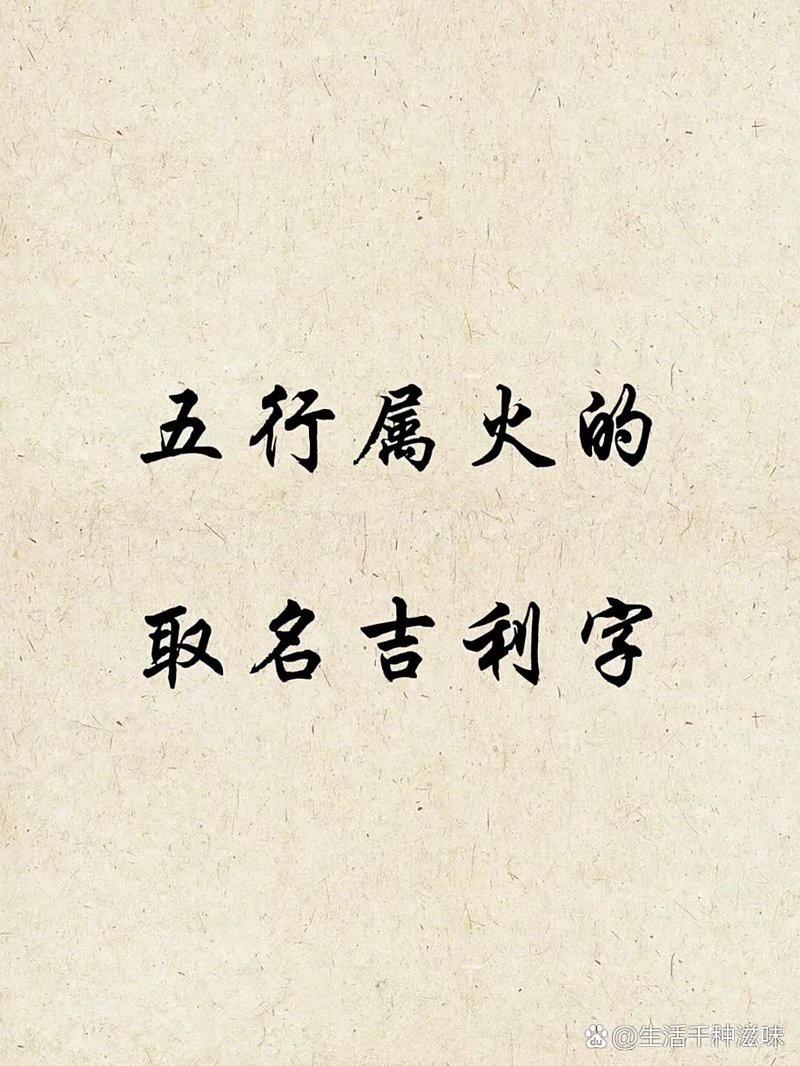 五行属火的
取名吉利字
@生活千种滋味